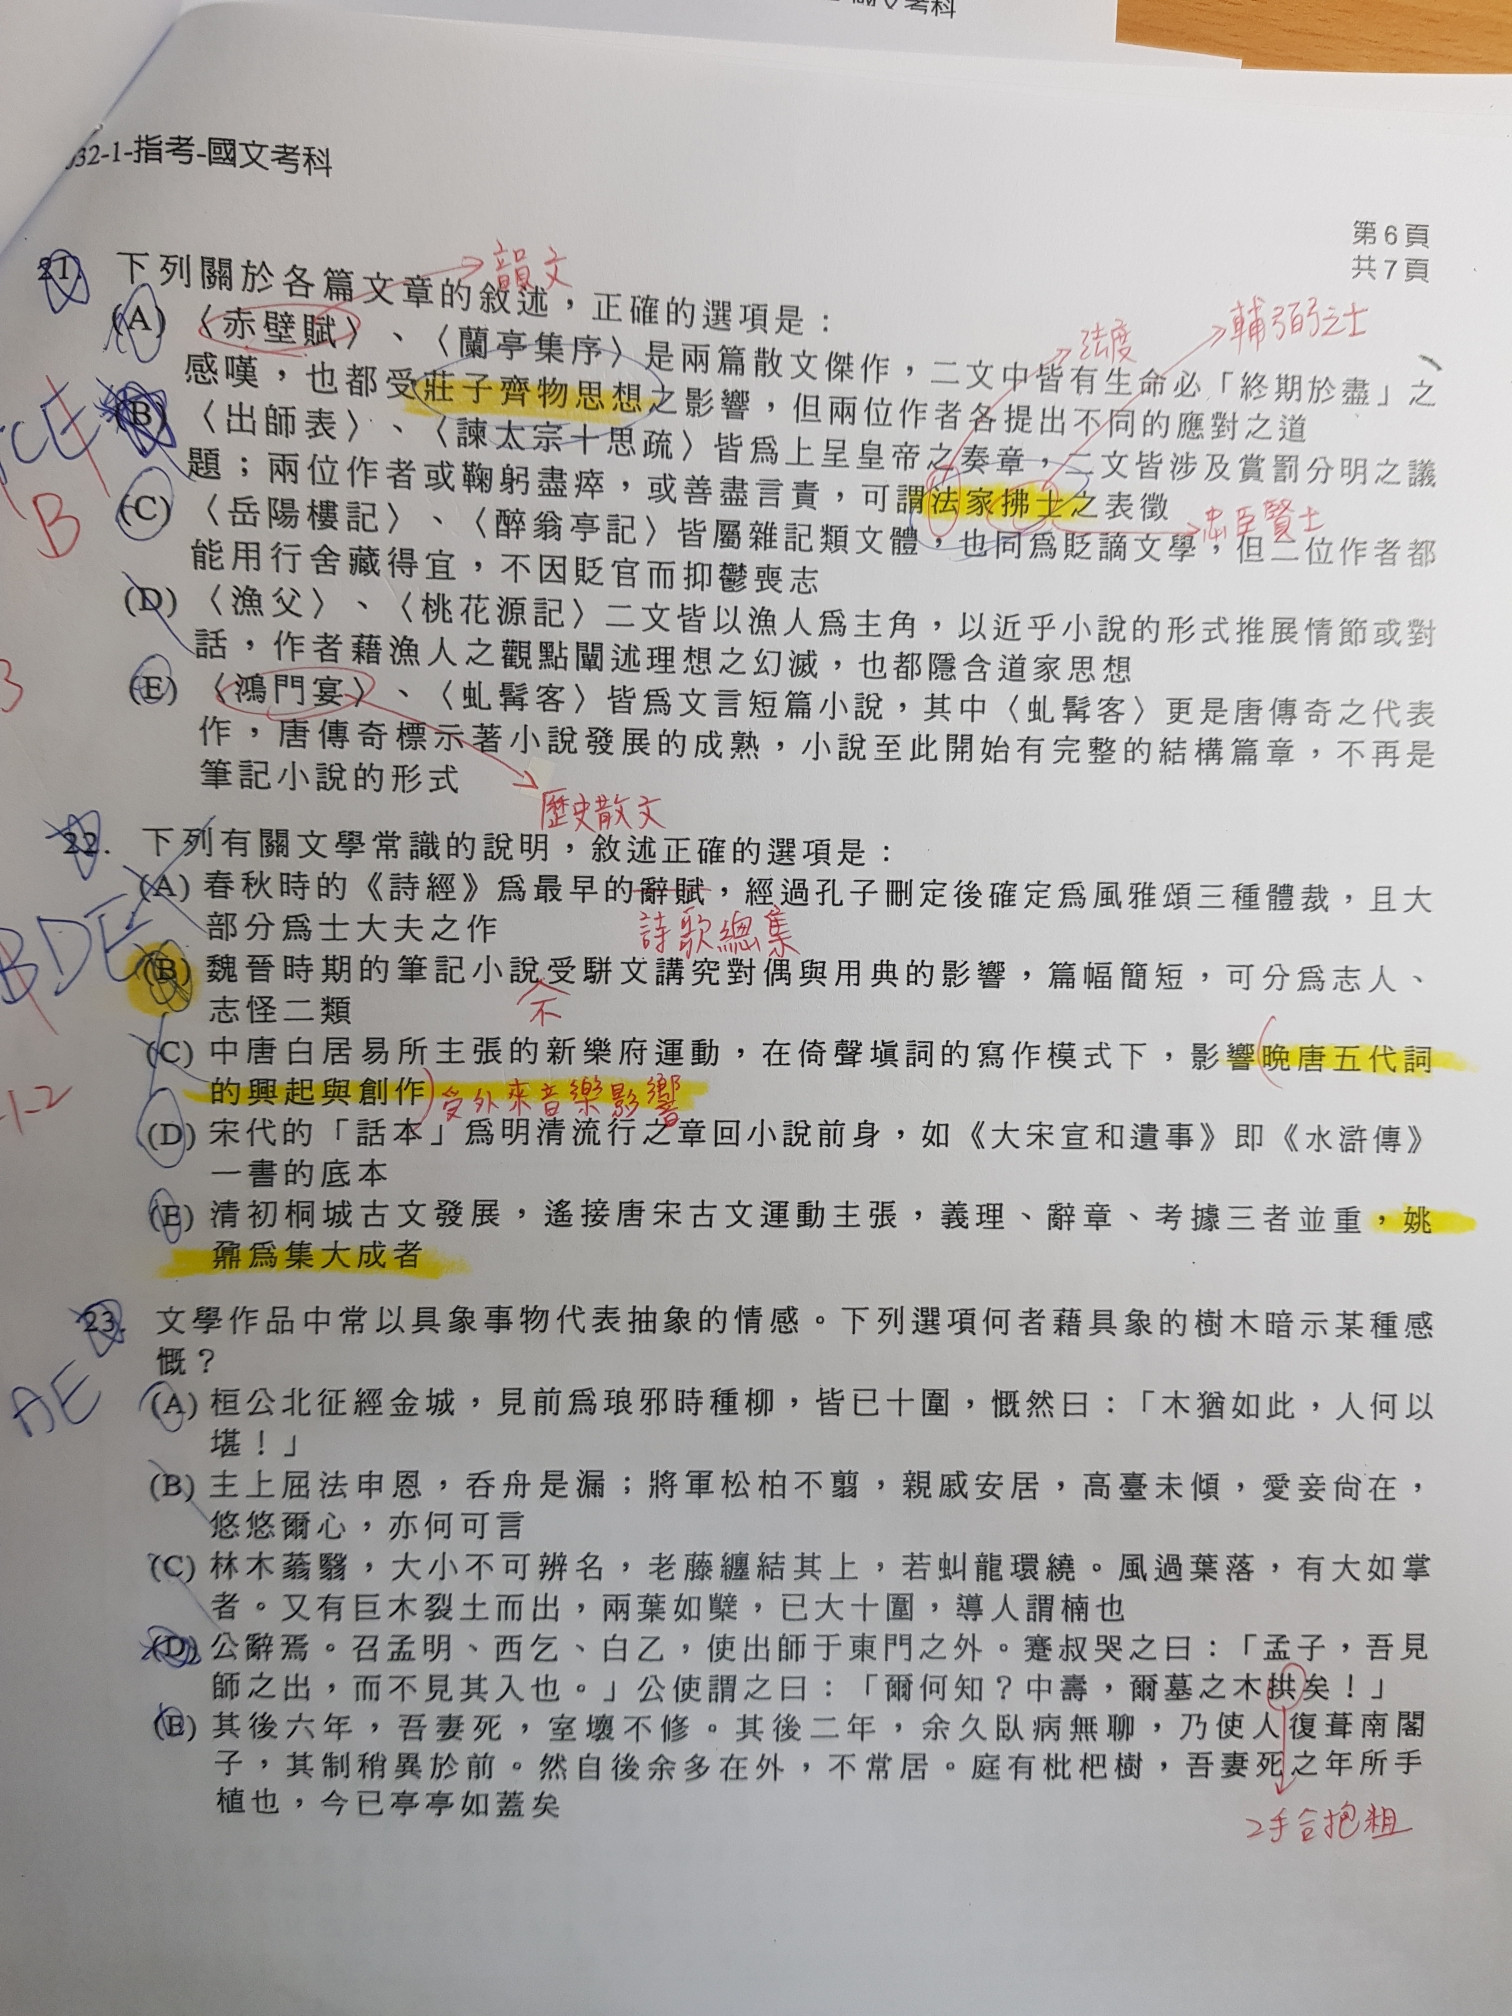 國文考科
032-1-指考-國文考科
第6頁
共7頁
21. 下列關於各篇文章的敘述，正確的選項是：
韻文
(A) 〈赤壁賦〉、〈蘭亭集序〉是兩篇散文傑作，二文中皆有生命必「終期於盡」之
感嘆，也都受莊子齊物思想之影響，但兩位作者各提出不同的應對之道
法度
輔弼之士
(B) 〈出師表〉、〈諫太宗十思疏〉皆爲上呈皇帝之奏章，二文皆涉及賞罰分明之議
題；兩位作者或鞠躬盡瘁，或善盡言責，可謂法家拂士之表徵
忠臣賢士
B
(C) 〈岳陽樓記〉、〈醉翁亭記〉皆屬雜記類文體，也同爲貶謫文學，但二位作者都
能用行舍藏得宜，不因貶官而抑鬱喪志
(D) 〈漁父〉、〈桃花源記〉二文皆以漁人爲主角，以近乎小說的形式推展情節或對
話，作者藉漁人之觀點闡述理想之幻滅，也都隱含道家思想
(E) 〈鴻門宴〉、〈虬髯客〉皆爲文言短篇小說，其中〈虬髯客〉更是唐傳奇之代表
作，唐傳奇標示著小說發展的成熟，小說至此開始有完整的結構篇章，不再是
筆記小說的形式
歷史散文
22. 下列有關文學常識的說明，敘述正確的選項是：
(A) 春秋時的《詩經》爲最早的辭賦，經過孔子刪定後確定爲風雅頌三種體裁，且大
部分爲士大夫之作
詩歌總集
BDE
(B) 魏晉時期的筆記小說受駢文講究對偶與用典的影響，篇幅簡短，可分爲志人、
志怪二類
不
(C) 中唐白居易所主張的新樂府運動，在倚聲塡詞的寫作模式下，影響晚唐五代詞
的興起與創作
受外來音樂影響
-1-2
(D) 宋代的「話本」爲明清流行之章回小說前身，如《大宋宣和遺事》即《水滸傳》
一書的底本
(E) 清初桐城古文發展，遙接唐宋古文運動主張，義理、辭章、考據三者並重，姚
鼐爲集大成者
23. 文學作品中常以具象事物代表抽象的情感。下列選項何者藉具象的樹木暗示某種感
慨？
AE
(A) 桓公北征經金城，見前爲琅邪時種柳，皆已十圍，慨然曰：「木猶如此，人何以
堪！」
(B) 主上屈法申恩，吞舟是漏；將軍松柏不翦，親戚安居，高臺未傾，愛妾尙在，
悠悠爾心，亦何可言
(C) 林木蓊翳，大小不可辨名，老藤纏結其上，若虯龍環繞。風過葉落，有大如掌
者。又有巨木裂土而出，兩葉如櫱，已大十圍，導人謂楠也
(D) 公辭焉。召孟明、西乞、白乙，使出師于東門之外。蹇叔哭之曰：「孟子，吾見
師之出，而不見其入也。」公使謂之曰：「爾何知？中壽，爾墓之木拱矣！」
(E) 其後六年，吾妻死，室壞不修。其後二年，余久臥病無聊，乃使人復葺南閣
子，其制稍異於前。然自後余多在外，不常居。庭有枇杷樹，吾妻死之年所手
植也，今已亭亭如蓋矣
2手合抱粗